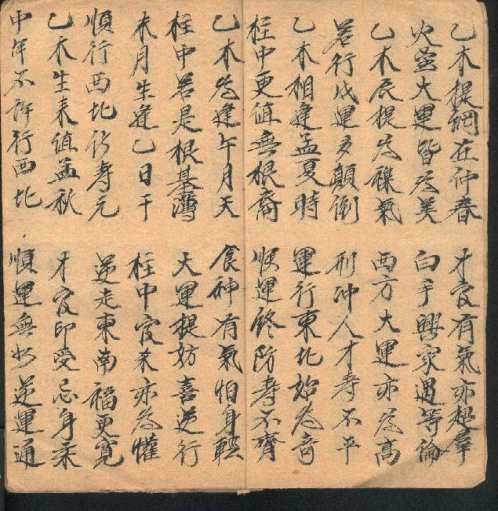 乙木提綱在仲春 才官有氣亦超羣
火金大運皆為美 白手興家過等倫
乙木辰提為襍氣 西方大運亦為高
若行戊運多顛倒 刑冲人才寿不平
乙木相逢孟夏時 運行東北始為奇
柱中更值無根裔 順運終防寿不齊
乙木為逢午月天 食神有氣怕身輕
柱中若是根基薄 大運提妨喜逆行
未月生逢乙日干 柱中官来亦為懽
順行西北伤寿元 逆走東南福更寬
乙木生来值孟秋 才官印受忌身柔
中年不許行西北 順運無如逆運通